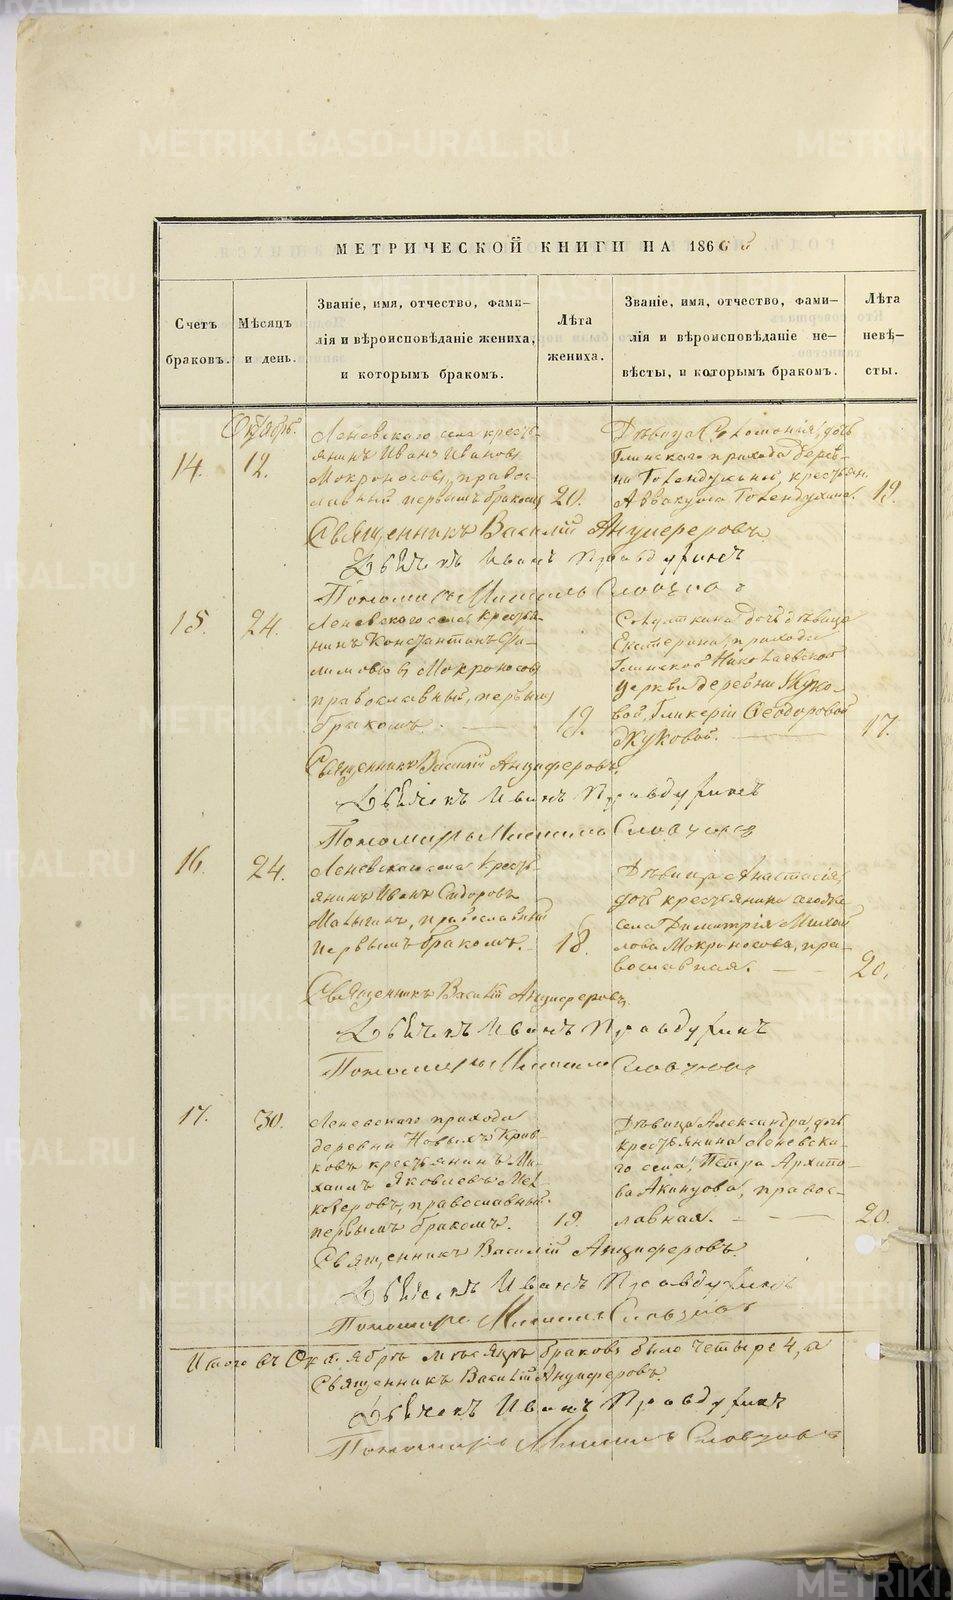 МЕТРИЧЕСКОЙ КНИГИ НА 1866 й
Счетъ браковъ.
Мѣсяцъ и день.
Званіе, имя, отчество, фами-
лія и вѣроисповѣданіе жениха,
и которымъ бракомъ.
Лѣта
жениха.
Званіе, имя, отчество, фами-
лія и вѣроисповѣданіе не-
вѣсты, и которымъ бракомъ.
Лѣта
невѣ-
сты.
Октябрь.
14. 12.
Леневскаго села кресть-
янинъ Иванъ Ивановъ
Мокроносовъ, правос-
лавный первымъ бракомъ
20.
Дѣвица Соломонія, дочь
Глинскаго прихода дерев-
ни Голендухиной, крестьян.
Аввакума Голендухина.
19.
Священникъ Василій Анциферовъ.
Дьячекъ Иванъ Правдухинъ
Пономарь Михаилъ Словцовъ
15. 24.
Леневскаго села кресть-
нинъ Константинъ Фи-
лимоновъ Мокроносовъ
православный, первымъ
бракомъ.
19.
дочь дѣвица
Екатерина, прихода
Глинской Николаевской
церкви деревни Жуко-
вой, Гликеріи Ѳеодоровой
Жуковой.
17.
Священникъ Василій Анциферовъ.
Дьячекъ Иванъ Правдухинъ
Пономарь Михаилъ Словцовъ
16. 24.
Леневскаго села кресть-
янинъ Иванъ Сидоровъ
Малыгинъ, православный
первымъ бракомъ.
18.
Дѣвица Анастасія,
дочь крестьянина
села Димитрія Михай
лова Мокроносова, пра-
вославная.
20.
Священникъ Василій Анциферовъ.
Дьячекъ Иванъ Правдухинъ
Пономарь Михаилъ Словцовъ
17. 30.
Леневскаго прихода
деревни Новыхъ Крив-
ковъ крестьянинъ Ми-
хаилъ Яковлевъ Мел-
козеровъ, православный.
первымъ бракомъ.
19.
Дѣвица Александра, дочь
крестьянина Леневска-
го села, Петра Архипо-
ва Акинцова, правос-
лавная.
20.
Священникъ Василій Анциферовъ.
Дьячекъ Иванъ Правдухинъ
Пономарь Михаилъ Словцовъ
Итого въ Октябрѣ мѣсяцѣ браковъ было четыре 4,
Священникъ Василій Анциферовъ.
Дьячекъ Иванъ Правдухинъ
Пономарь Михаилъ Словцовъ
METRIKI.GASO-URAL.RU